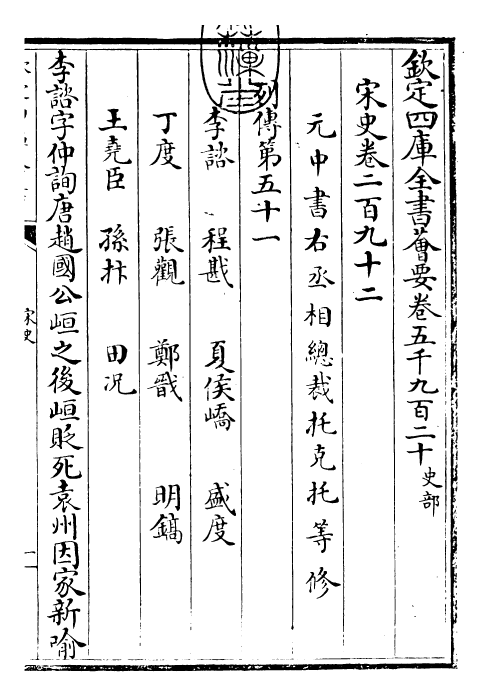 欽定四庫全書薈要卷五千九百二十 史部
宋史卷二百九十二
元中書右丞相總裁托克托等修
列傳第五十一
李諮 程戡 夏侯嶠 盛度
丁度 張觀 鄭戩 明鎬
王堯臣 孫抃 田況
李諮字仲詢唐趙國公峘之後峘貶死袁州因家新喻
宋史
一